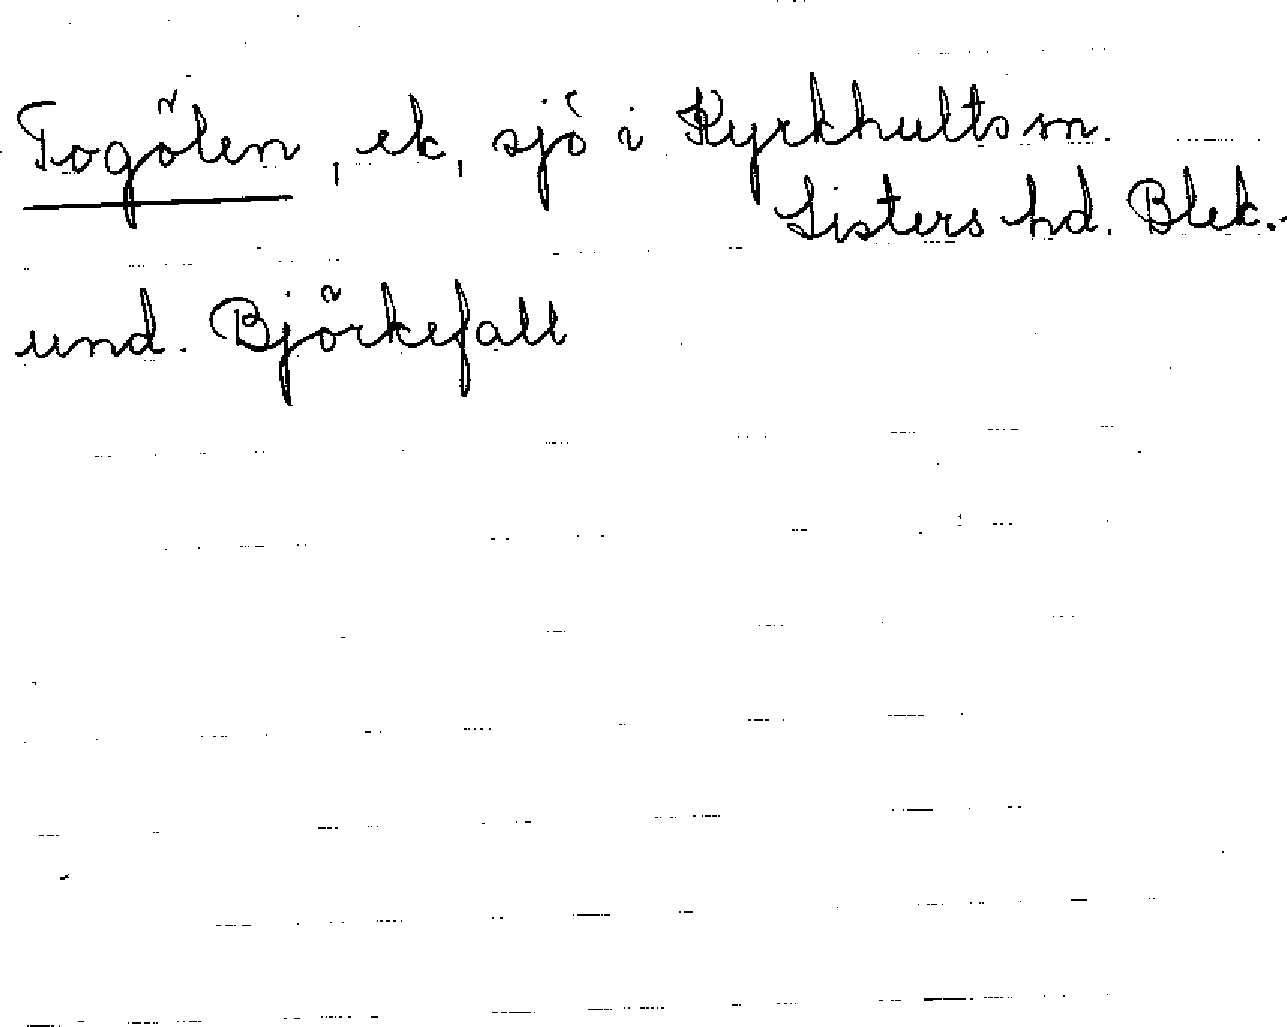 Togölen, ek, sjö i Kyrkhults sn.
Listers hd. Blek.
und. Björkefall